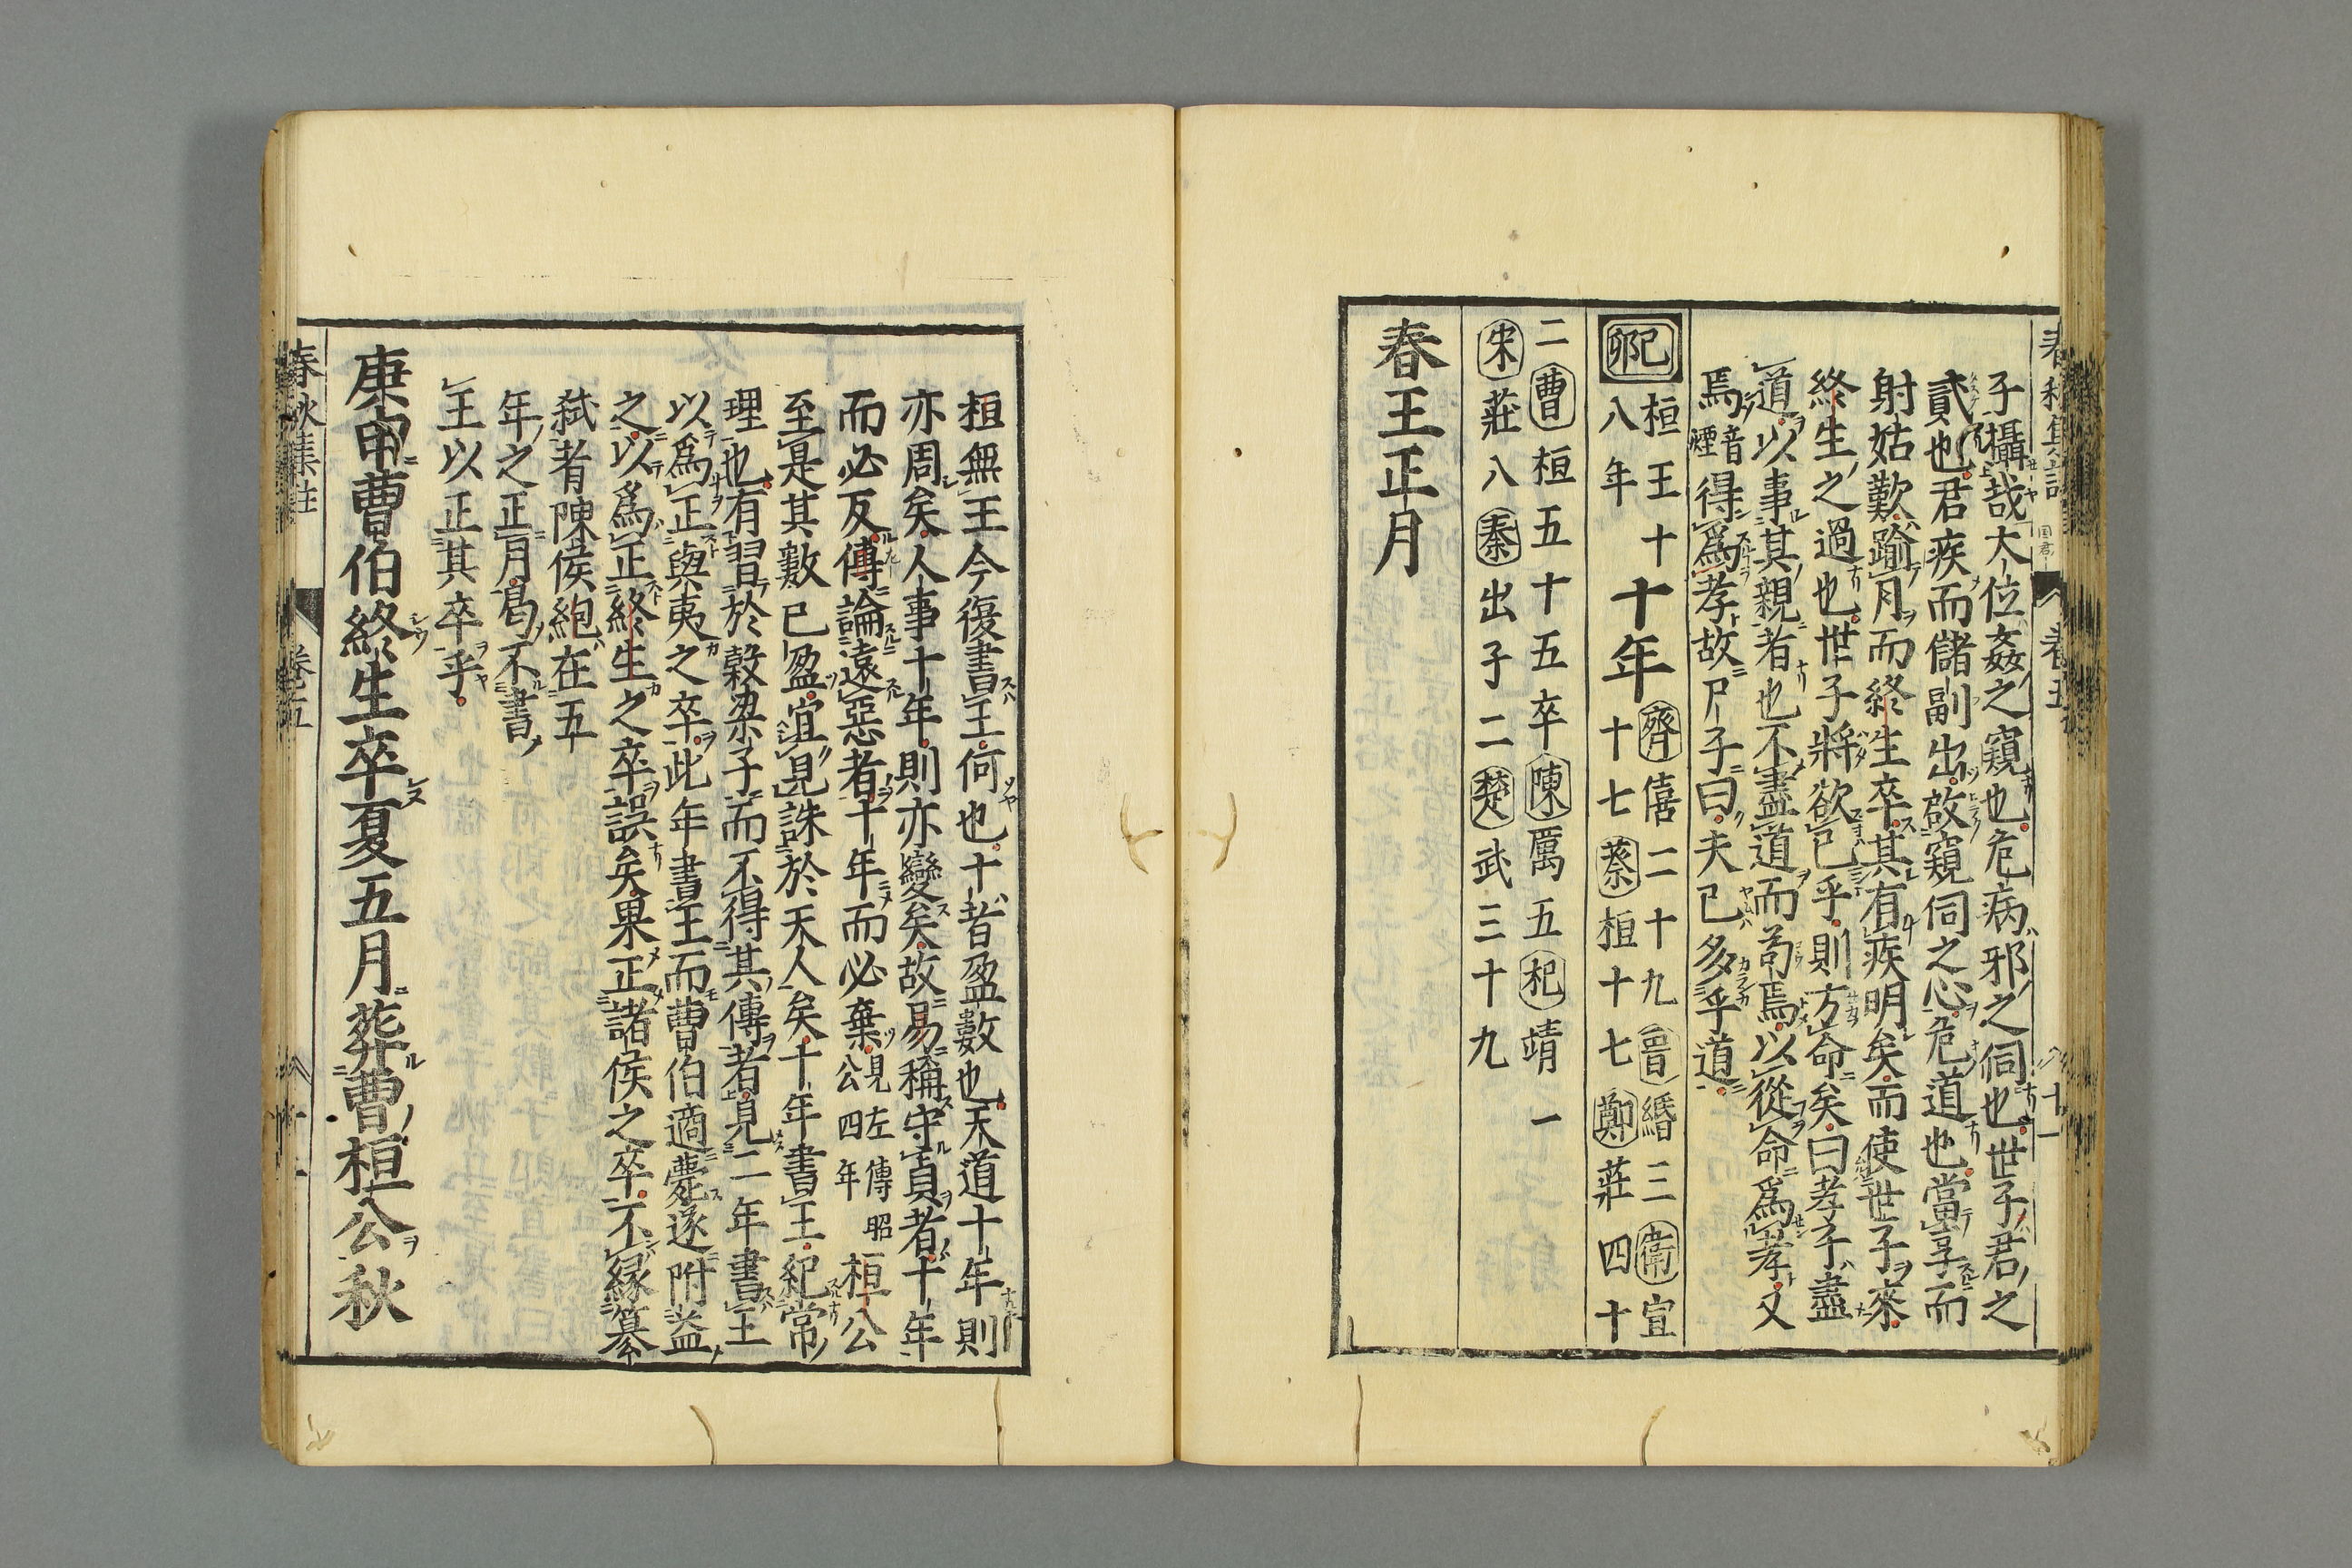 子攝哉大位姦之窺也危病邪之伺也世子君之
貳也君疾而儲副出啟窺伺之心危道也當享而
射姑歎踰月而終生卒其有疾明矣而使世子來
終生之過也世子將欲已乎則方命矣曰孝子盡
道以事其親者也不盡道而苟焉以從命爲孝又
焉音煙得爲孝故尸子曰夫已多乎道
己卯
桓王十
八年
十年
齊僖二十九晉緡三衛宣
十七蔡桓十七鄭莊四十
二曹桓五十五卒陳厲五杞靖一
宋莊八秦出子二楚武三十九
春王正月
桓無王今復書王何也十者盈數也天道十年則
亦周矣人事十年則亦變矣故易稱守貞者十年
而必反傳論遠惡者十年而必棄見左傳昭公四年桓公
至是其數已盈宜見誅於天人矣十年書王紀常
理也有習於穀梁子而不得其傳者見二年書王
以爲正與夷之卒此年書王而曹伯適薨遂附益
之以爲正終生之卒誤矣果正諸侯之卒不緣篡
弑者陳侯鮑在五
年之正月曷不書
王以正其卒乎
庚申曹伯終生卒夏五月葬曹桓公秋
春秋集註
卷五
十一